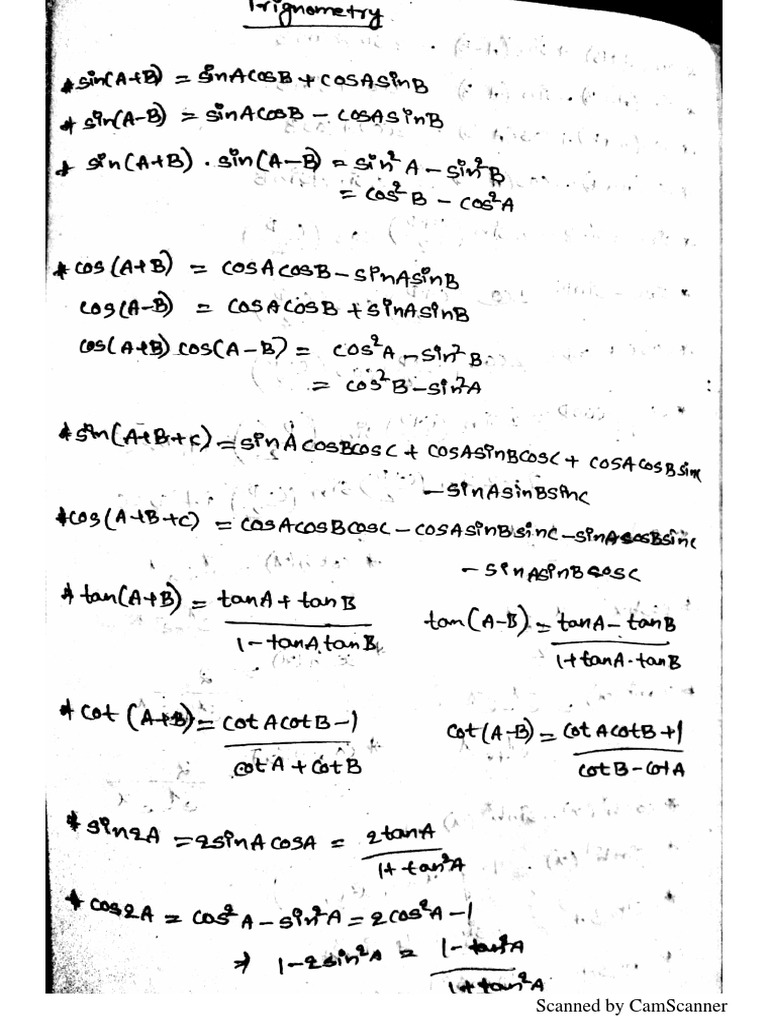 Trignometry
* sin(A+B) = sinAcosB + cosAsinB
* sin(A-B) = sinAcosB - cosAsinB
* sin(A+B) . sin(A-B) = sin²A - sin²B
= cos²B - cos²A
* cos(A+B) = cosAcosB - sinAsinB
cos(A-B) = cosAcosB + sinAsinB
cos(A+B) cos(A-B) = cos²A - sin²B
= cos²B - sin²A
* sin(A+B+C) = sinAcosBcosC + cosAsinBcosC + cosAcosBsinc
- sinAsinBsinc
* cos(A+B+C) = cosAcosBcosC - cosAsinBsinC - sinAcosBsinc
- sinAsinBcosC
* tan(A+B) = tanA + tanB / 1 - tanA.tanB tan(A-B) = tanA - tanB / 1 + tanA.tanB
* cot(A+B) = cotAcotB - 1 / cotA + cotB cot(A-B) = cotAcotB + 1 / cotB - cotA
* sin2A = 2sinAcosA = 2tanA / 1 + tan²A
* cos2A = cos²A - sin²A = 2cos²A - 1
⇒ 1 - 2sin²A = 1 - tan²A / 1 + tan²A
Scanned by CamScanner